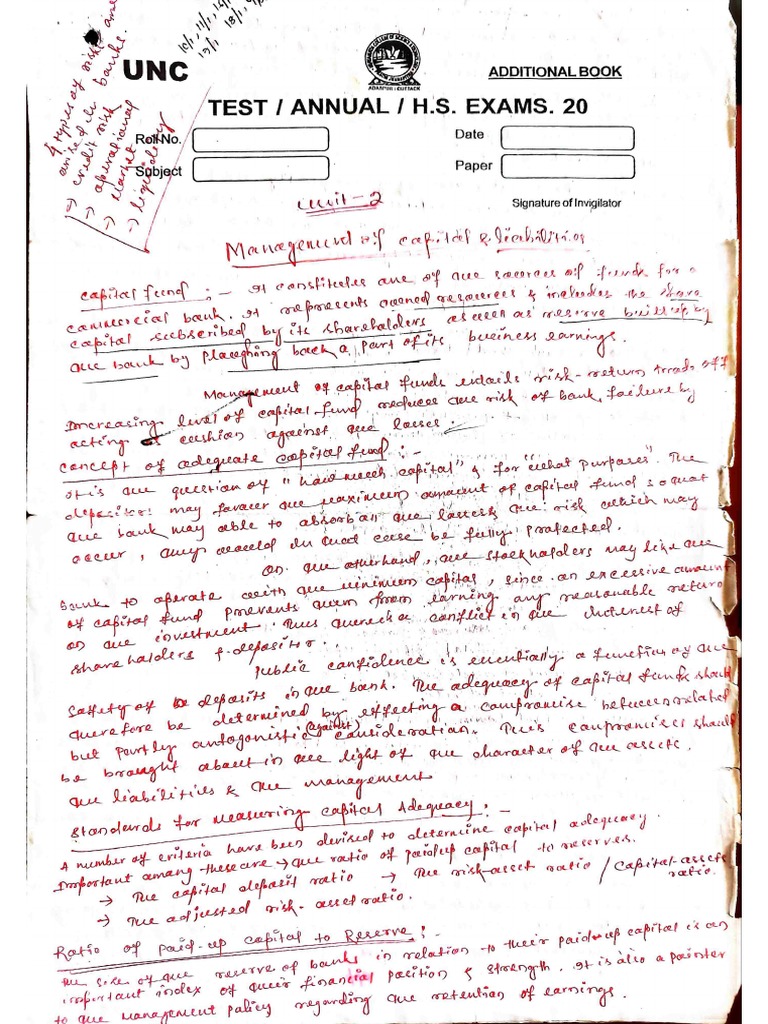 4 types of risk
arise in the banks.
→ credit risk
→ operational
→ market
→ liquidity
10/1, 11/1,
UNC
ADANPUR : CUTTACK
ADDITIONAL BOOK
TEST / ANNUAL / H.S. EXAMS. 20
Roll No.
Date
Subject
Paper
Signature of Invigilator
Unit - 2
Management of capital & liabilities
Capital fund : - It constitutes one of the sources of funds for a
commercial bank. It represents owned resources & includes the share
capital subscribed by its shareholders as well as reserve built up by
the bank by ploughing back a part of its business earnings.
Management of capital funds entails risk-return trade off
Increasing level of capital fund reduces the risk of bank failure by
acting as cushion against the losses.
Concept of adequate capital fund : -
It is the question of "how much capital" & for "what purposes". The
depositors may favour the maximum amount of capital fund so that
the bank may able to absorb all the losses & the risk which may
occur, they would in that case be fully protected.
On the other hand, the stockholders may like the
bank to operate with the minimum capital, since an excessive amount
of capital fund prevents them from earning any reasonable return
on the investment. Thus there is a conflict in the interest of
shareholders & depositor.
Public confidence is essentially a function of the
safety of deposits in the bank. The adequacy of capital funds should
therefore be determined by effecting a compromise between related
but partly antogonistic (against) consideration. This compromises should
be brought about in the light of the character of the assets,
the liabilities & the management
Standards for measuring capital Adequacy : -
A number of criteria have been devised to determine capital adequacy.
Important among these are → the ratio of paid up capital to reserves.
→ The capital deposit ratio → The risk-asset ratio / Capital-assets
ratio.
→ The adjusted risk-asset ratio.
Ratio of paid-up capital to Reserve : -
The size of the reserve of banks in relation to their paid-up capital is an
important index of their financial position & strength. It is also a pointer
to the management policy regarding the retention of earnings.